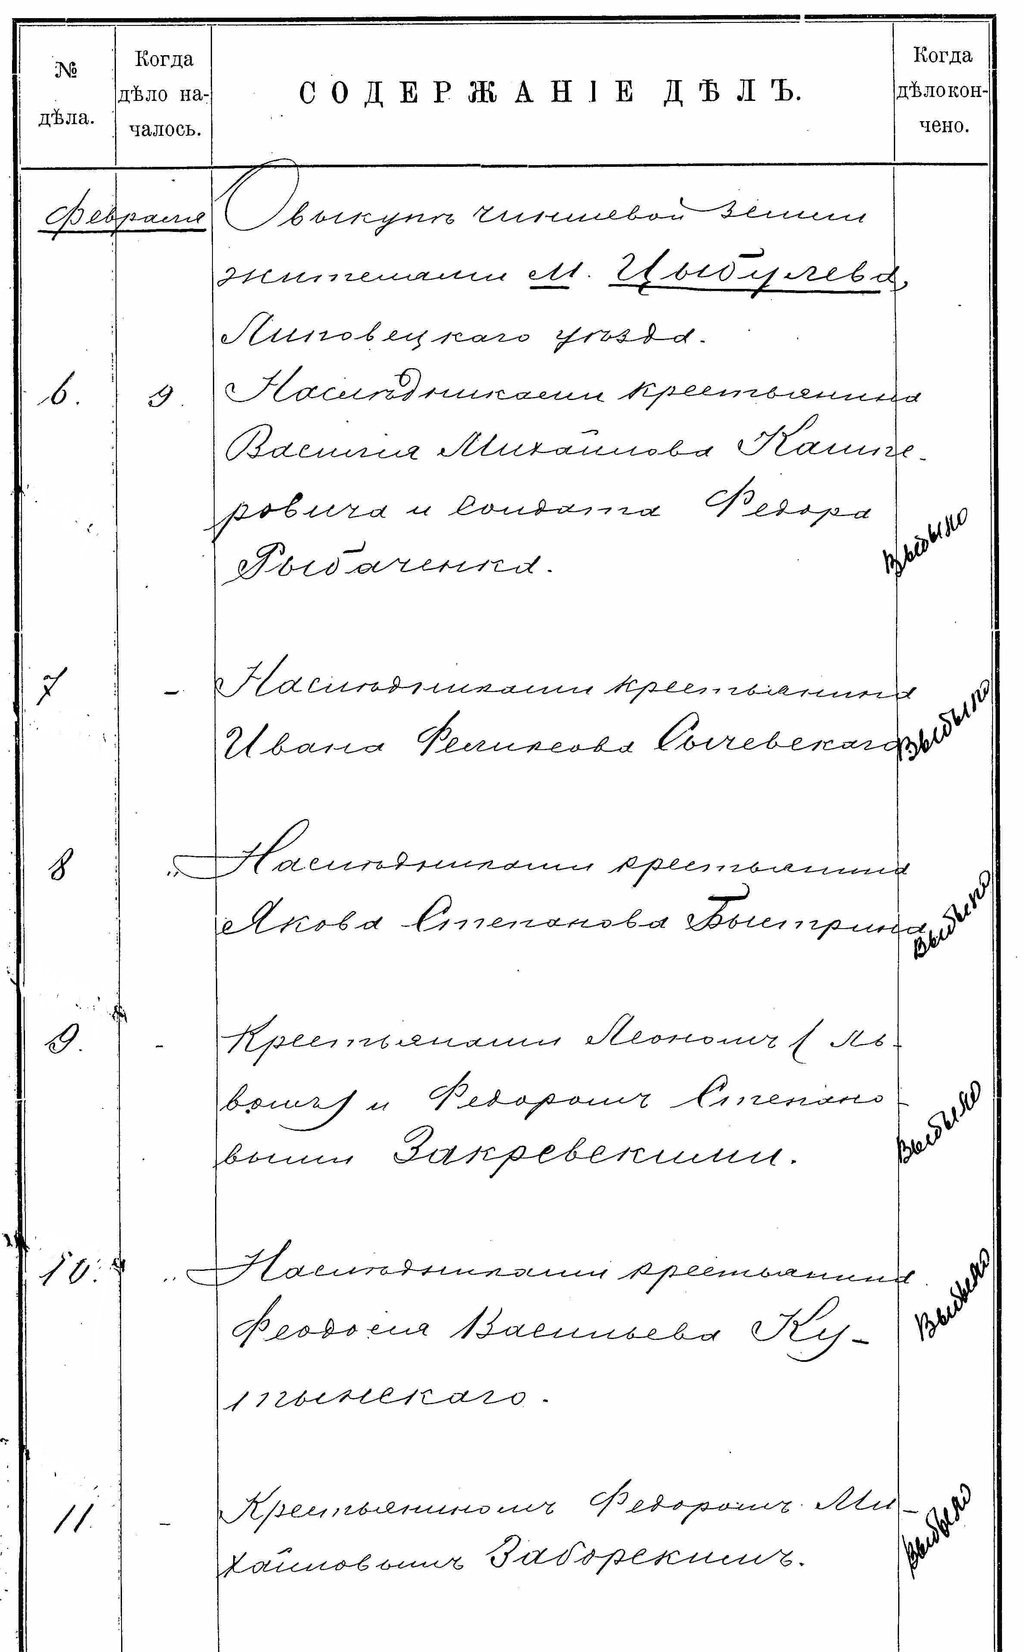 № дѣла.
Когда дѣло на-
чалось.
СОДЕРЖАНІЕ ДѢЛЪ.
Когда дѣло кон-
чено.
Февраля
О выкупѣ чиншевой земли
жителями м. Цыбулева,
Липовецкаго уѣзда.
6. 9. Наслѣдниками крестьянина
Василия Михайлова Кашпе-
ровича и солдата Федора
Рыбаченка.
Выбыло
7 - Наслѣдниками крестьянина
Ивана Феликсова Сычевскаго
Выбыло
8 „ Наслѣдниками крестьянина
Якова Степанова Быстрина
Выбыло
9. - Крестьянами Леономъ (Ль-
вомъ) и Федоромъ Степано-
выми Закревскими.
Выбыло
10. „ Наслѣдниками крестьянина
Феодосия Васильева Ку-
Выбыло
11. - Крестьяниномъ Федоромъ Ми-
хайловымъ Заборскимъ.
Выбыло